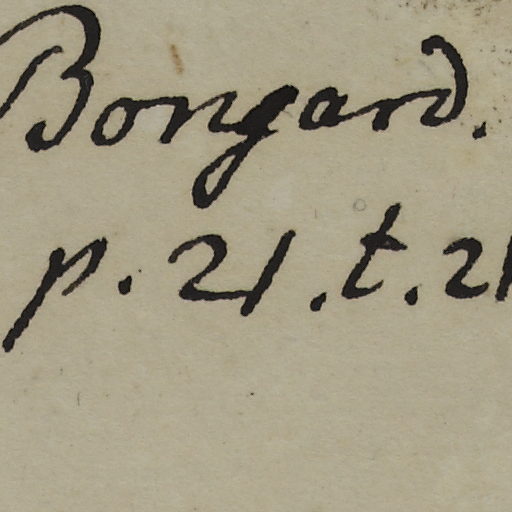 Bongard.
p. 21. t. 21